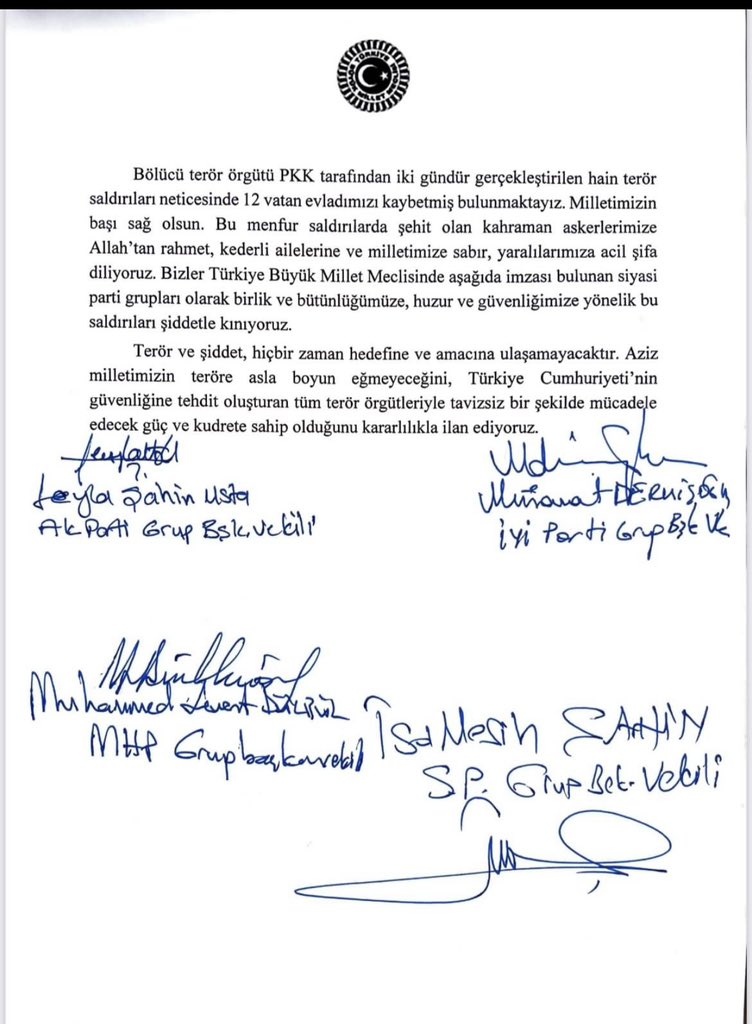 TÜRKİYE BÜYÜK MİLLET MECLİSİ
Bölücü terör örgütü PKK tarafından iki gündür gerçekleştirilen hain terör
saldırıları neticesinde 12 vatan evladımızı kaybetmiş bulunmaktayız. Milletimizin
başı sağ olsun. Bu menfur saldırılarda şehit olan kahraman askerlerimize
Allah’tan rahmet, kederli ailelerine ve milletimize sabır, yaralılarımıza acil şifa
diliyoruz. Bizler Türkiye Büyük Millet Meclisinde aşağıda imzası bulunan siyasi
parti grupları olarak birlik ve bütünlüğümüze, huzur ve güvenliğimize yönelik bu
saldırıları şiddetle kınıyoruz.
Terör ve şiddet, hiçbir zaman hedefine ve amacına ulaşamayacaktır. Aziz
milletimizin teröre asla boyun eğmeyeceğini, Türkiye Cumhuriyeti’nin
güvenliğine tehdit oluşturan tüm terör örgütleriyle tavizsiz bir şekilde mücadele
edecek güç ve kudrete sahip olduğunu kararlılıkla ilan ediyoruz.
Leyla Şahin Usta
Ak Parti Grup Bşk.vekili
DERVİŞOĞLU
İyi Parti Grup Bşk Vk
Muhammed Levent BÜLBÜL
MHP Grup başkanvekili
İsa Mesih ŞAHİN
SP. Grup Bşk. Vekili